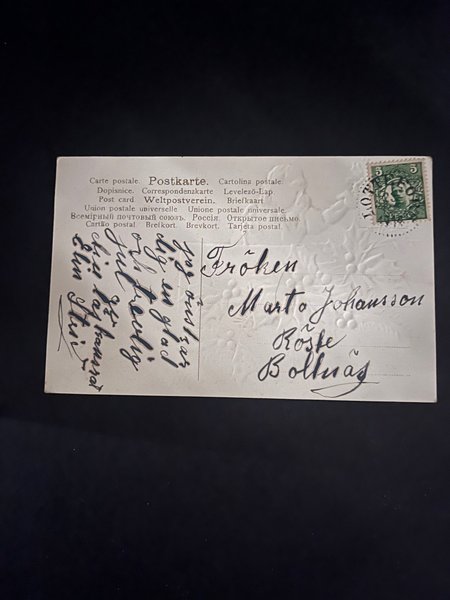 Carte postale. Postkarte. Cartolina postale.
Dopisnice. Correspondenzkarte Levelező-Lap.
Post card Weltpostverein. Briefkaart
Union postale universelle. Unione postale universale.
Всемірный почтовый союзъ. Россія. Открытое письмо.
Cartão postal. Breikort. Brevkort. Tarjeta postal.
jag önskar
dig en glad
och fredlig
Jul
din kamrat
Elin
Fröken
Marta Johansson
Röste
Bollnäs
5